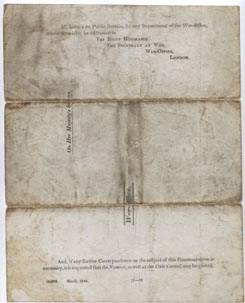 All Letters on Public Service, for any Department of the War-Office,
should invariably be addressed to
The Right Honorable
The Secretary at War,
War-Office,
London.
On Her Majesty's Service.
War-Office.
And, if any further Correspondence on the subject of this Communication is
necessary, it is requested that the Number, as well as the Date
March, 1845.